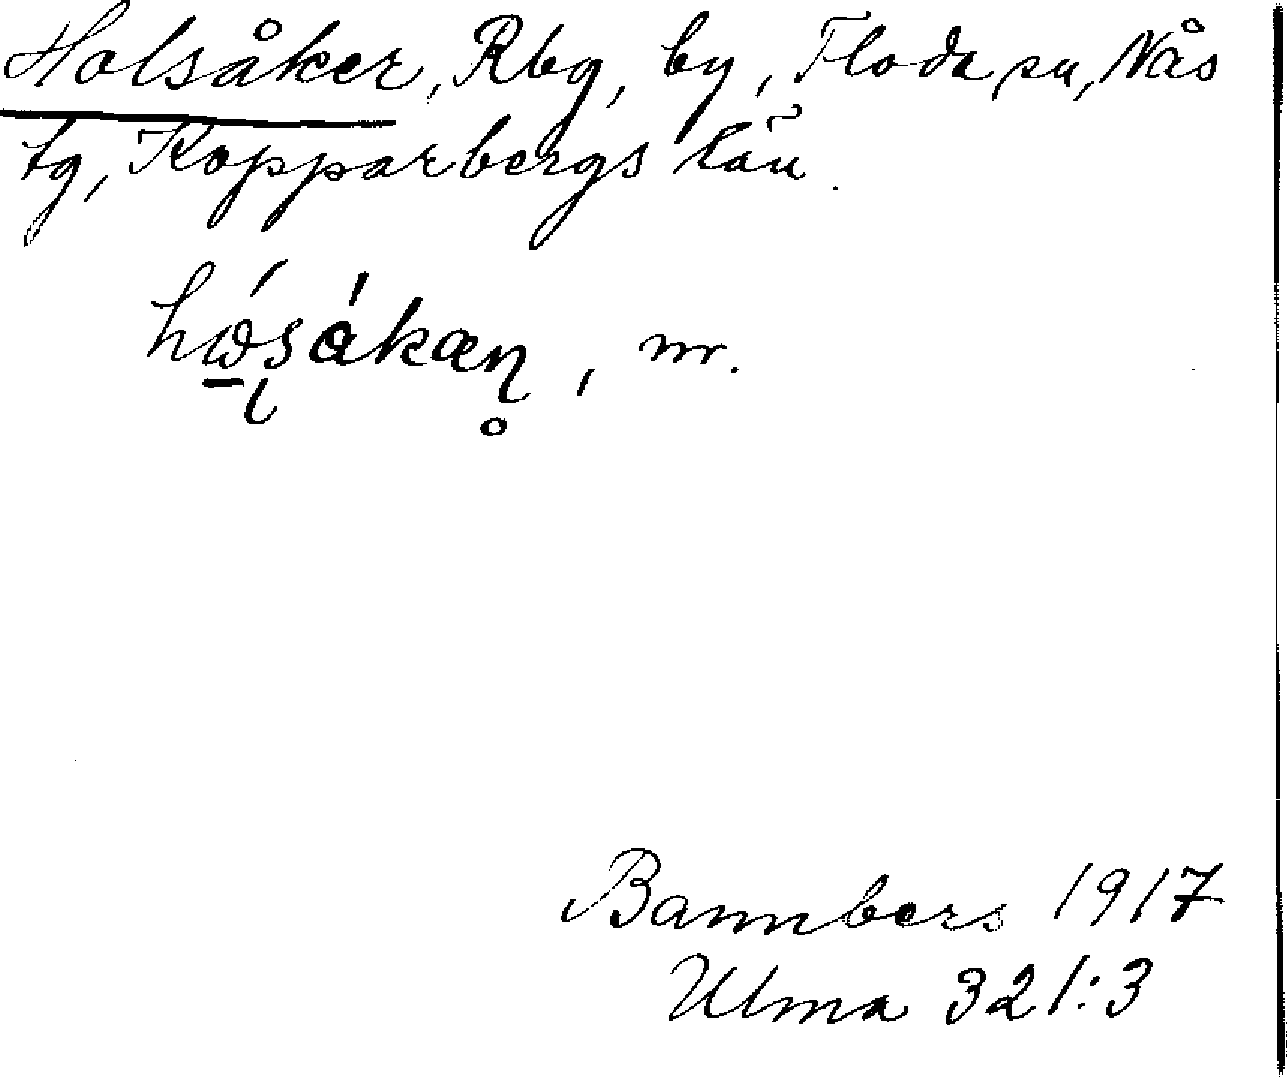 Holsåker, Rbg, by, Floda sn, Nås
tg, Kopparbergs län.
hǫ́sákæn̥, m.
Bannbers 1917
Ulma 321:3